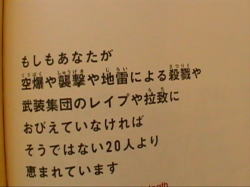 もしもあなたが
空爆や襲撃や地雷による殺戮や
武装集団のレイプや拉致に
おびえていなければ
そうではない20人より
恵まれています